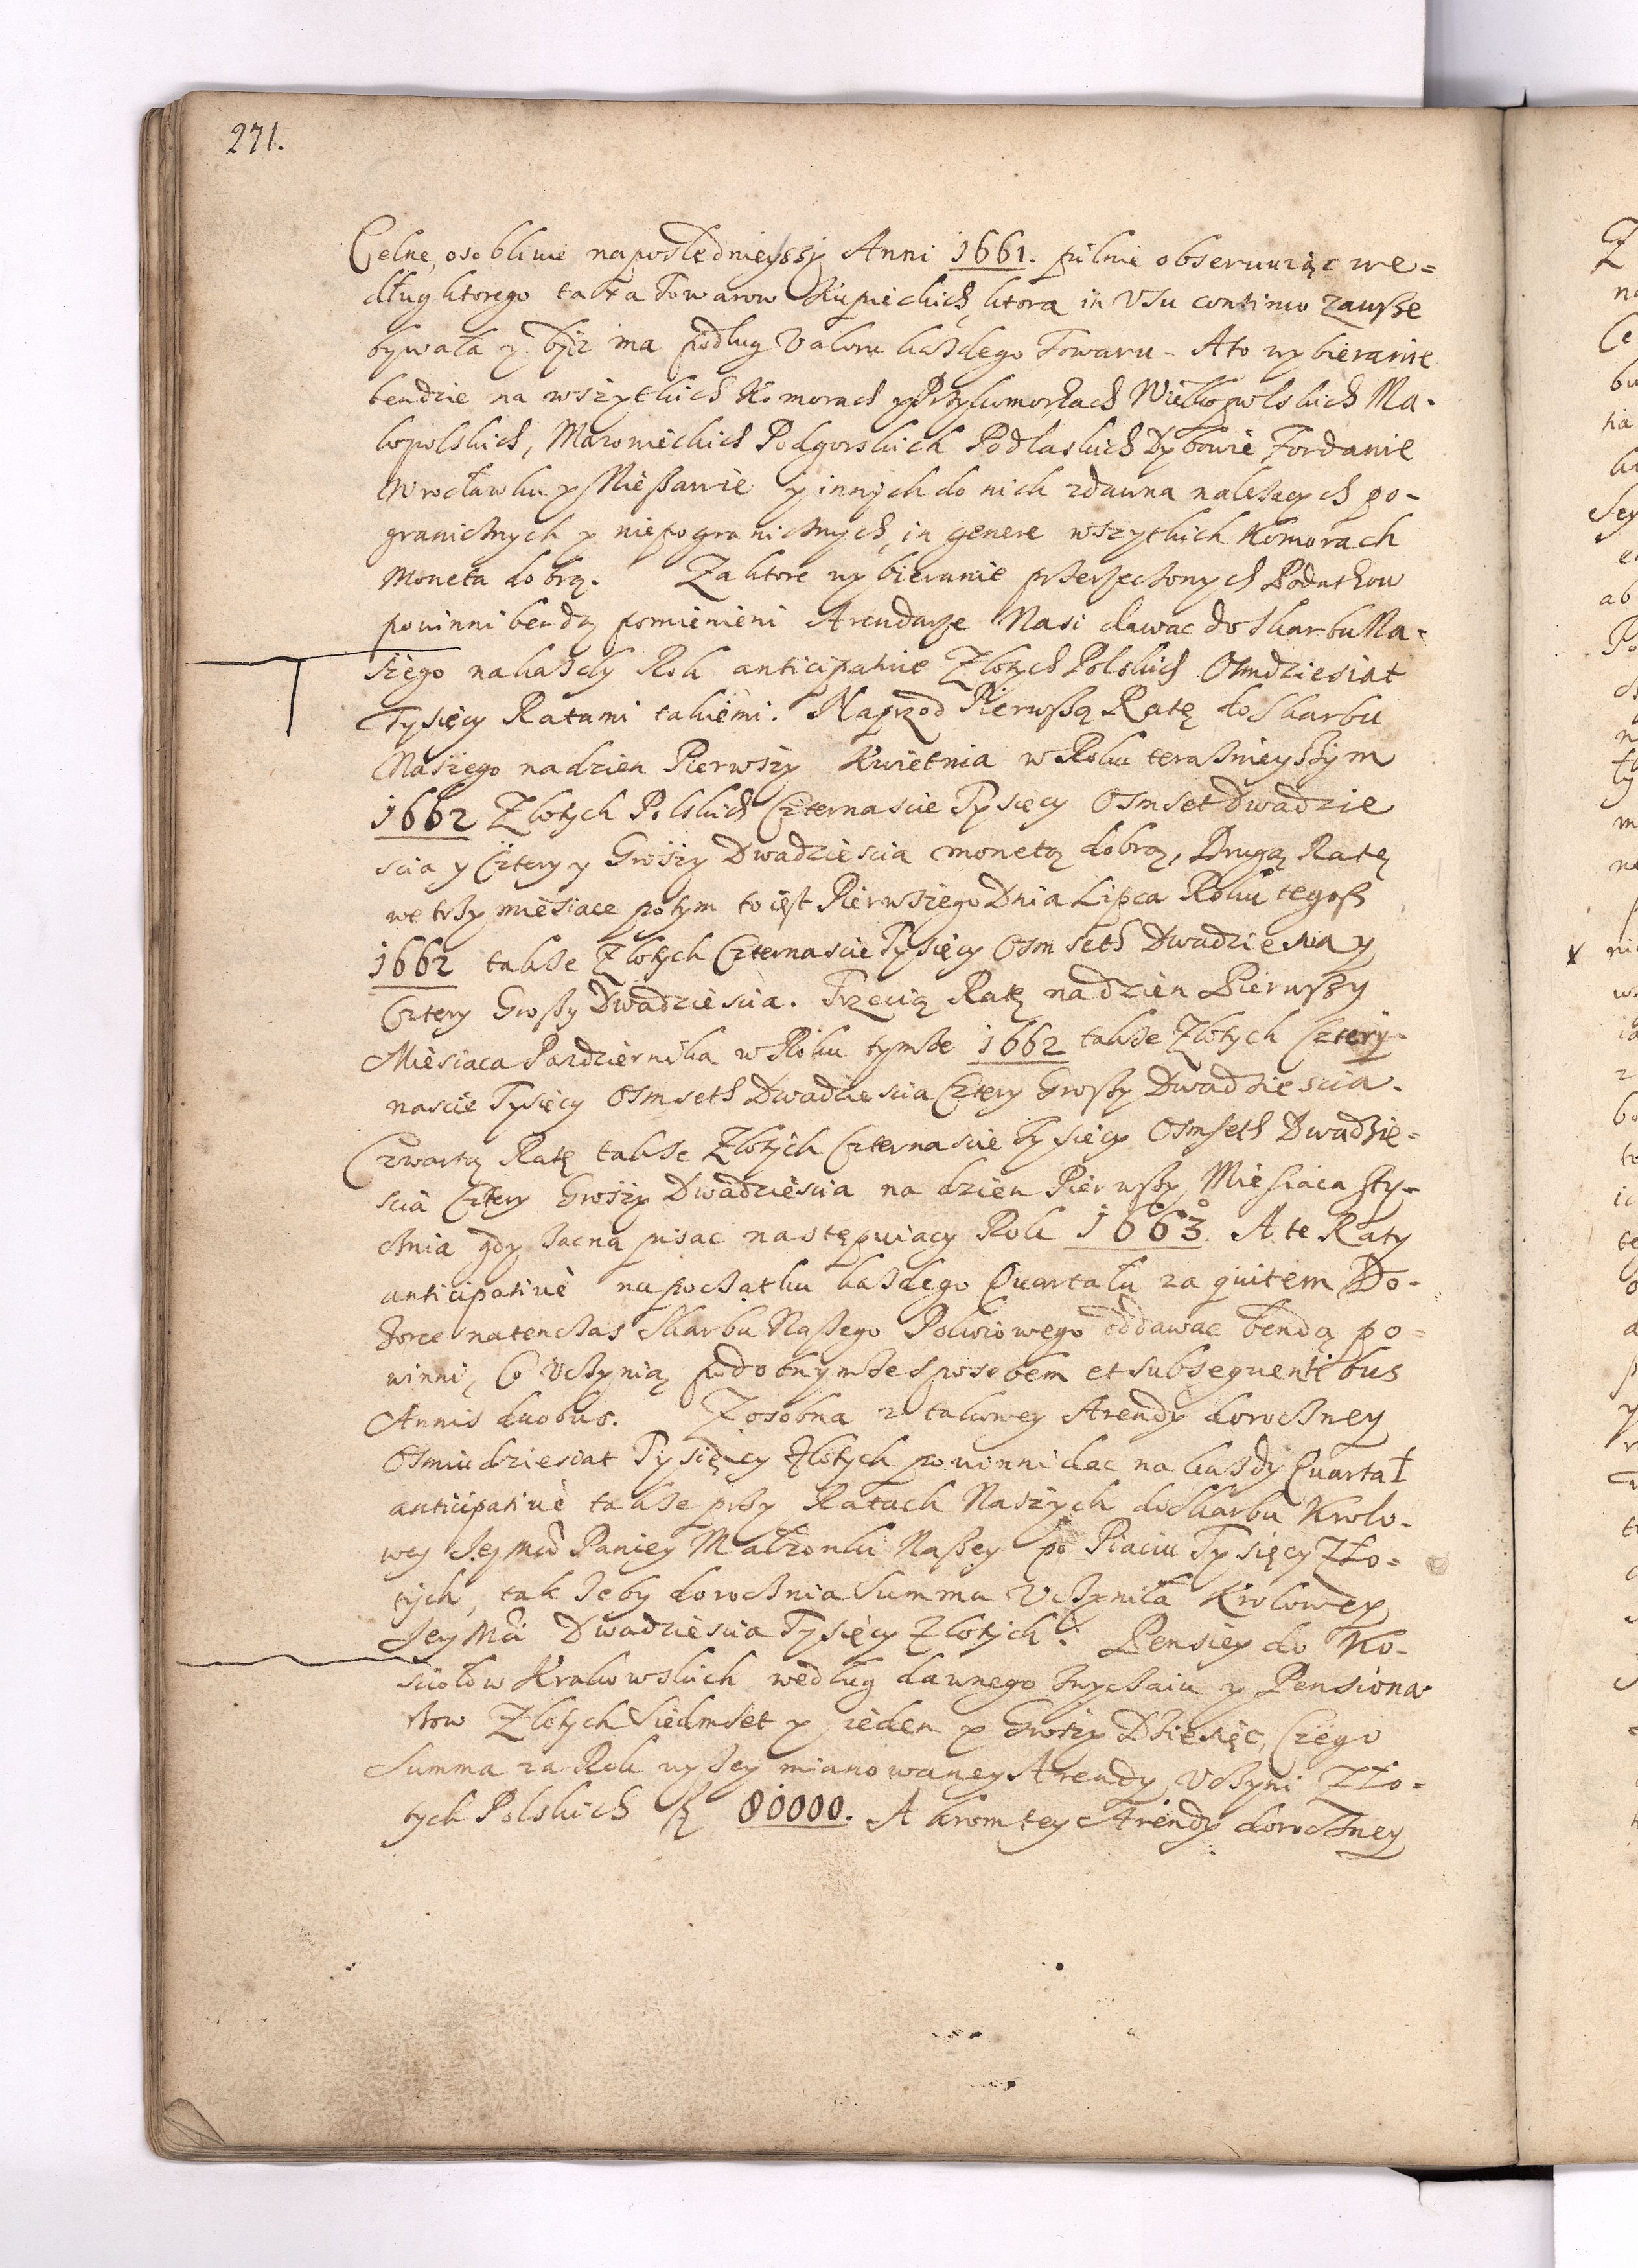 271.
Celne, osobliwie naposlednieyszy Anni 1661. pilnie obserwuiąc we=
dług ktorego taxa Towarow Kupieckich, ktora in Vsu continuo zawsze
bywała y bydz ma podług Valoru każdego Towaru. A to wybieranie
bendzie na wszytkich Komorach y Przykomorkach Wielkopolskich Ma-
łopolskich, Mazowieckich Podgorskich Podlaskich Dybowie Fordanie
Wrocławku y Nieszawie y innych do nich zdawna należących po-
granicznych y niepogranicznych, in genere wszytkich Komorach
Moneta dobrą. Za ktore wybieranie przerzeczonych Podatkow
powinni bendą pomienieni Arendarze Nasi dawac do Skarbu Na-
szego na każdy Rok anticipative Złotych Polskich Osmdziesiat
Tysięcy Ratami takiemi. Naprzod Pierwszą Ratę do Skarbu
Naszego na dzien Pierwszy Kwietnia w Roku terażnieyszym
1662 Złotych Polskich Czternascie Tysięcy Osmset Dwadzie
scia y Cztery y Groszy Dwadziescia monetą dobrą, Drugą Ratę
we trzy miesiace potym to iest Pierwszego Dnia Lipca Roku tegosz
1662 także Złotych Czternascie Tysięcy Osmseth Dwadziescia y
Cztery Groszy Dwadziescia. Trzecią Ratę na dzien Pierwszy
Miesiaca Pazdziernika w Roku tymże 1662 także Złotych Cztery-
nascie Tysięcy Osmseth Dwadziescia Cztery Groszy Dwadziescia.
Czwartą Ratę także Złotych Czternascie Tysięcy Osmseth Dwadzie=
scia Cztery Groszy Dwadziescia na dzien Pierwszy Miesiaca Sty=
cznia gdy zaczną pisac następuiacy Rok 1663. A te Raty
anticipative na początku każdego Quartału za quitem Do-
zorce natenczas Skarbu Naszego Pokoiowego oddawac bendą po=
winni, Co Uczynią podobnymże sposobem et subsequentibus
Annis duobus. Zosobna z takowey Arendy doroczney
Osmiudziesiat Tysięcy Złotych powinni dac na każdy Quartał
anticipative także przy Ratach Naszych do Skarbu Krolo-
wey Jey Mci Paniey Małzonki Naszey po Piaciu Tysięcy Zło=
tych, tak żeby dorocznia Summa Uczyniła Krolowey
Jey Mci Dwadziescia Tysięcy Złotych. Pensiey do Ko-
sciołow Krakowskich według dawnego zwyczaiu y Pensiona
rzow Złotych Siedmset y ieden y Groszy Dziesięc, Czego
Summa za Rok wyżey mianowaney Arendy Uczyni Zło=
tych Polskich fl 80000. A krom tey Arendy doroczney